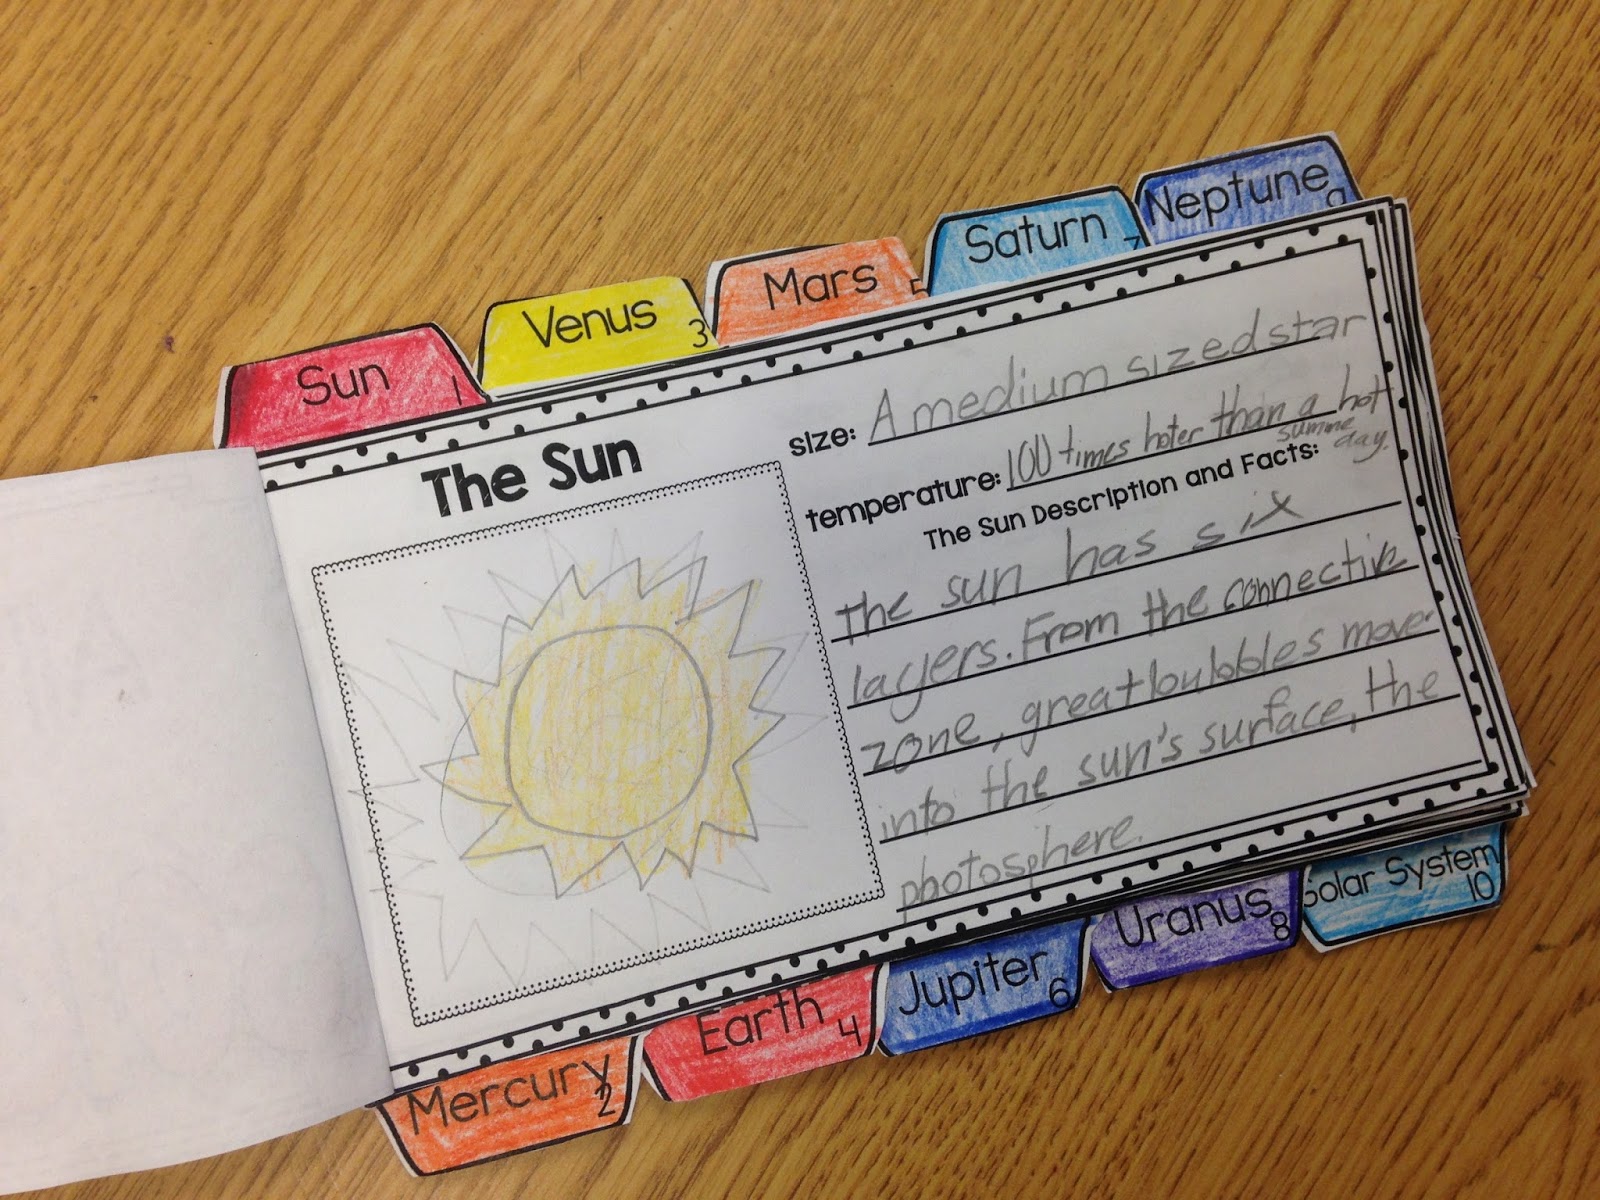 Neptune 9
Saturn 7
Mars 5
Venus 3
Sun 1
The Sun
size: A medium sized star
temperature: 100 times hoter than a hot
summe day.
The Sun Description and Facts:
The sun has six
layers. From the connective
zone, great bubbles move
into the sun's surface, the
photosphere.
Mercury 2
Earth 4
Jupiter 6
Uranus 8
Solar System 10